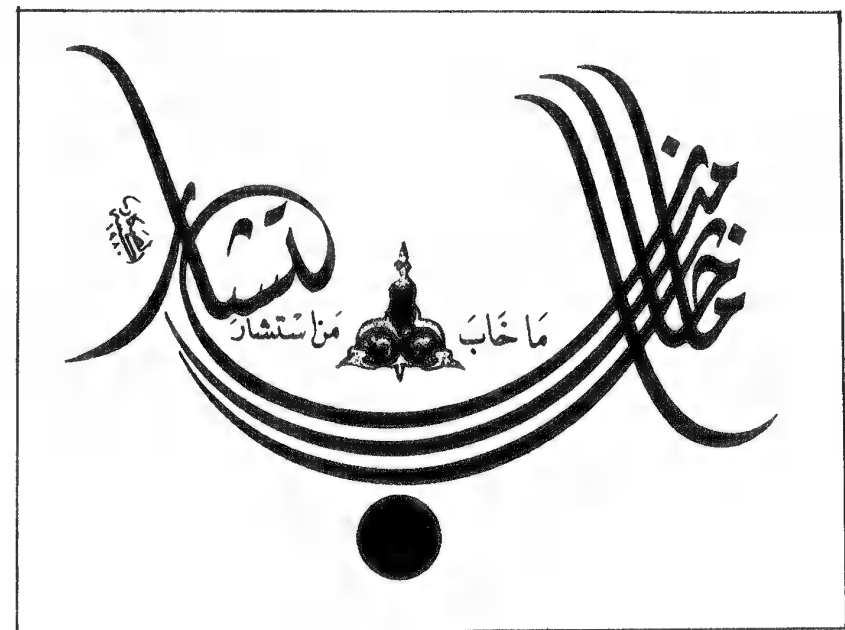 ما خاب من استشار
مَا خَابَ مَنِ اسْتَشارَ